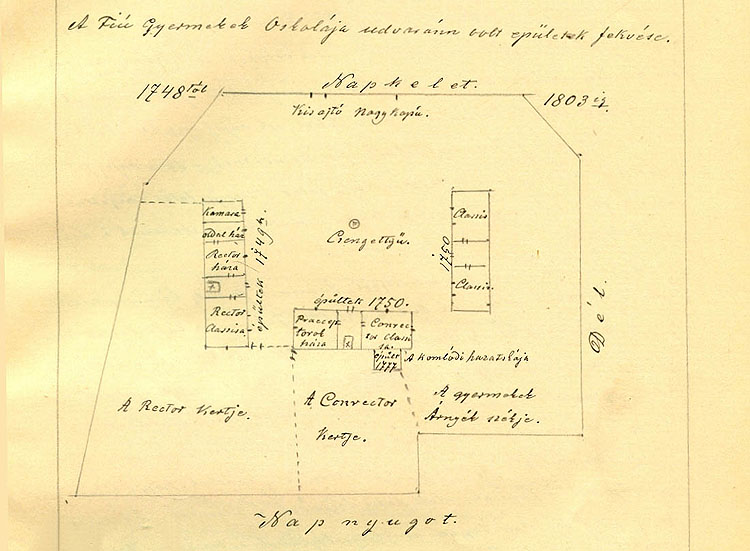 A Fiú Gyermekek Oskolája udvaránn volt épületek fekvése.
1748tól
Napkelet.
1803ig.
Kisajtó Nagykapú.
Kamara
oldal ház
Rector
hára
Rector
Classisa.
épültek 1749b.
Csengettyü.
1750
Classis
Classis.
Dél.
épültek 1750.
Praecep
torok
hára
Conrec
tor classi
sa.
épült
1777
A komlódi huzatskája
A Rector Kertje.
A Conrector
Kertje.
A gyermekek
Árnyék székje.
Nap nyugot.